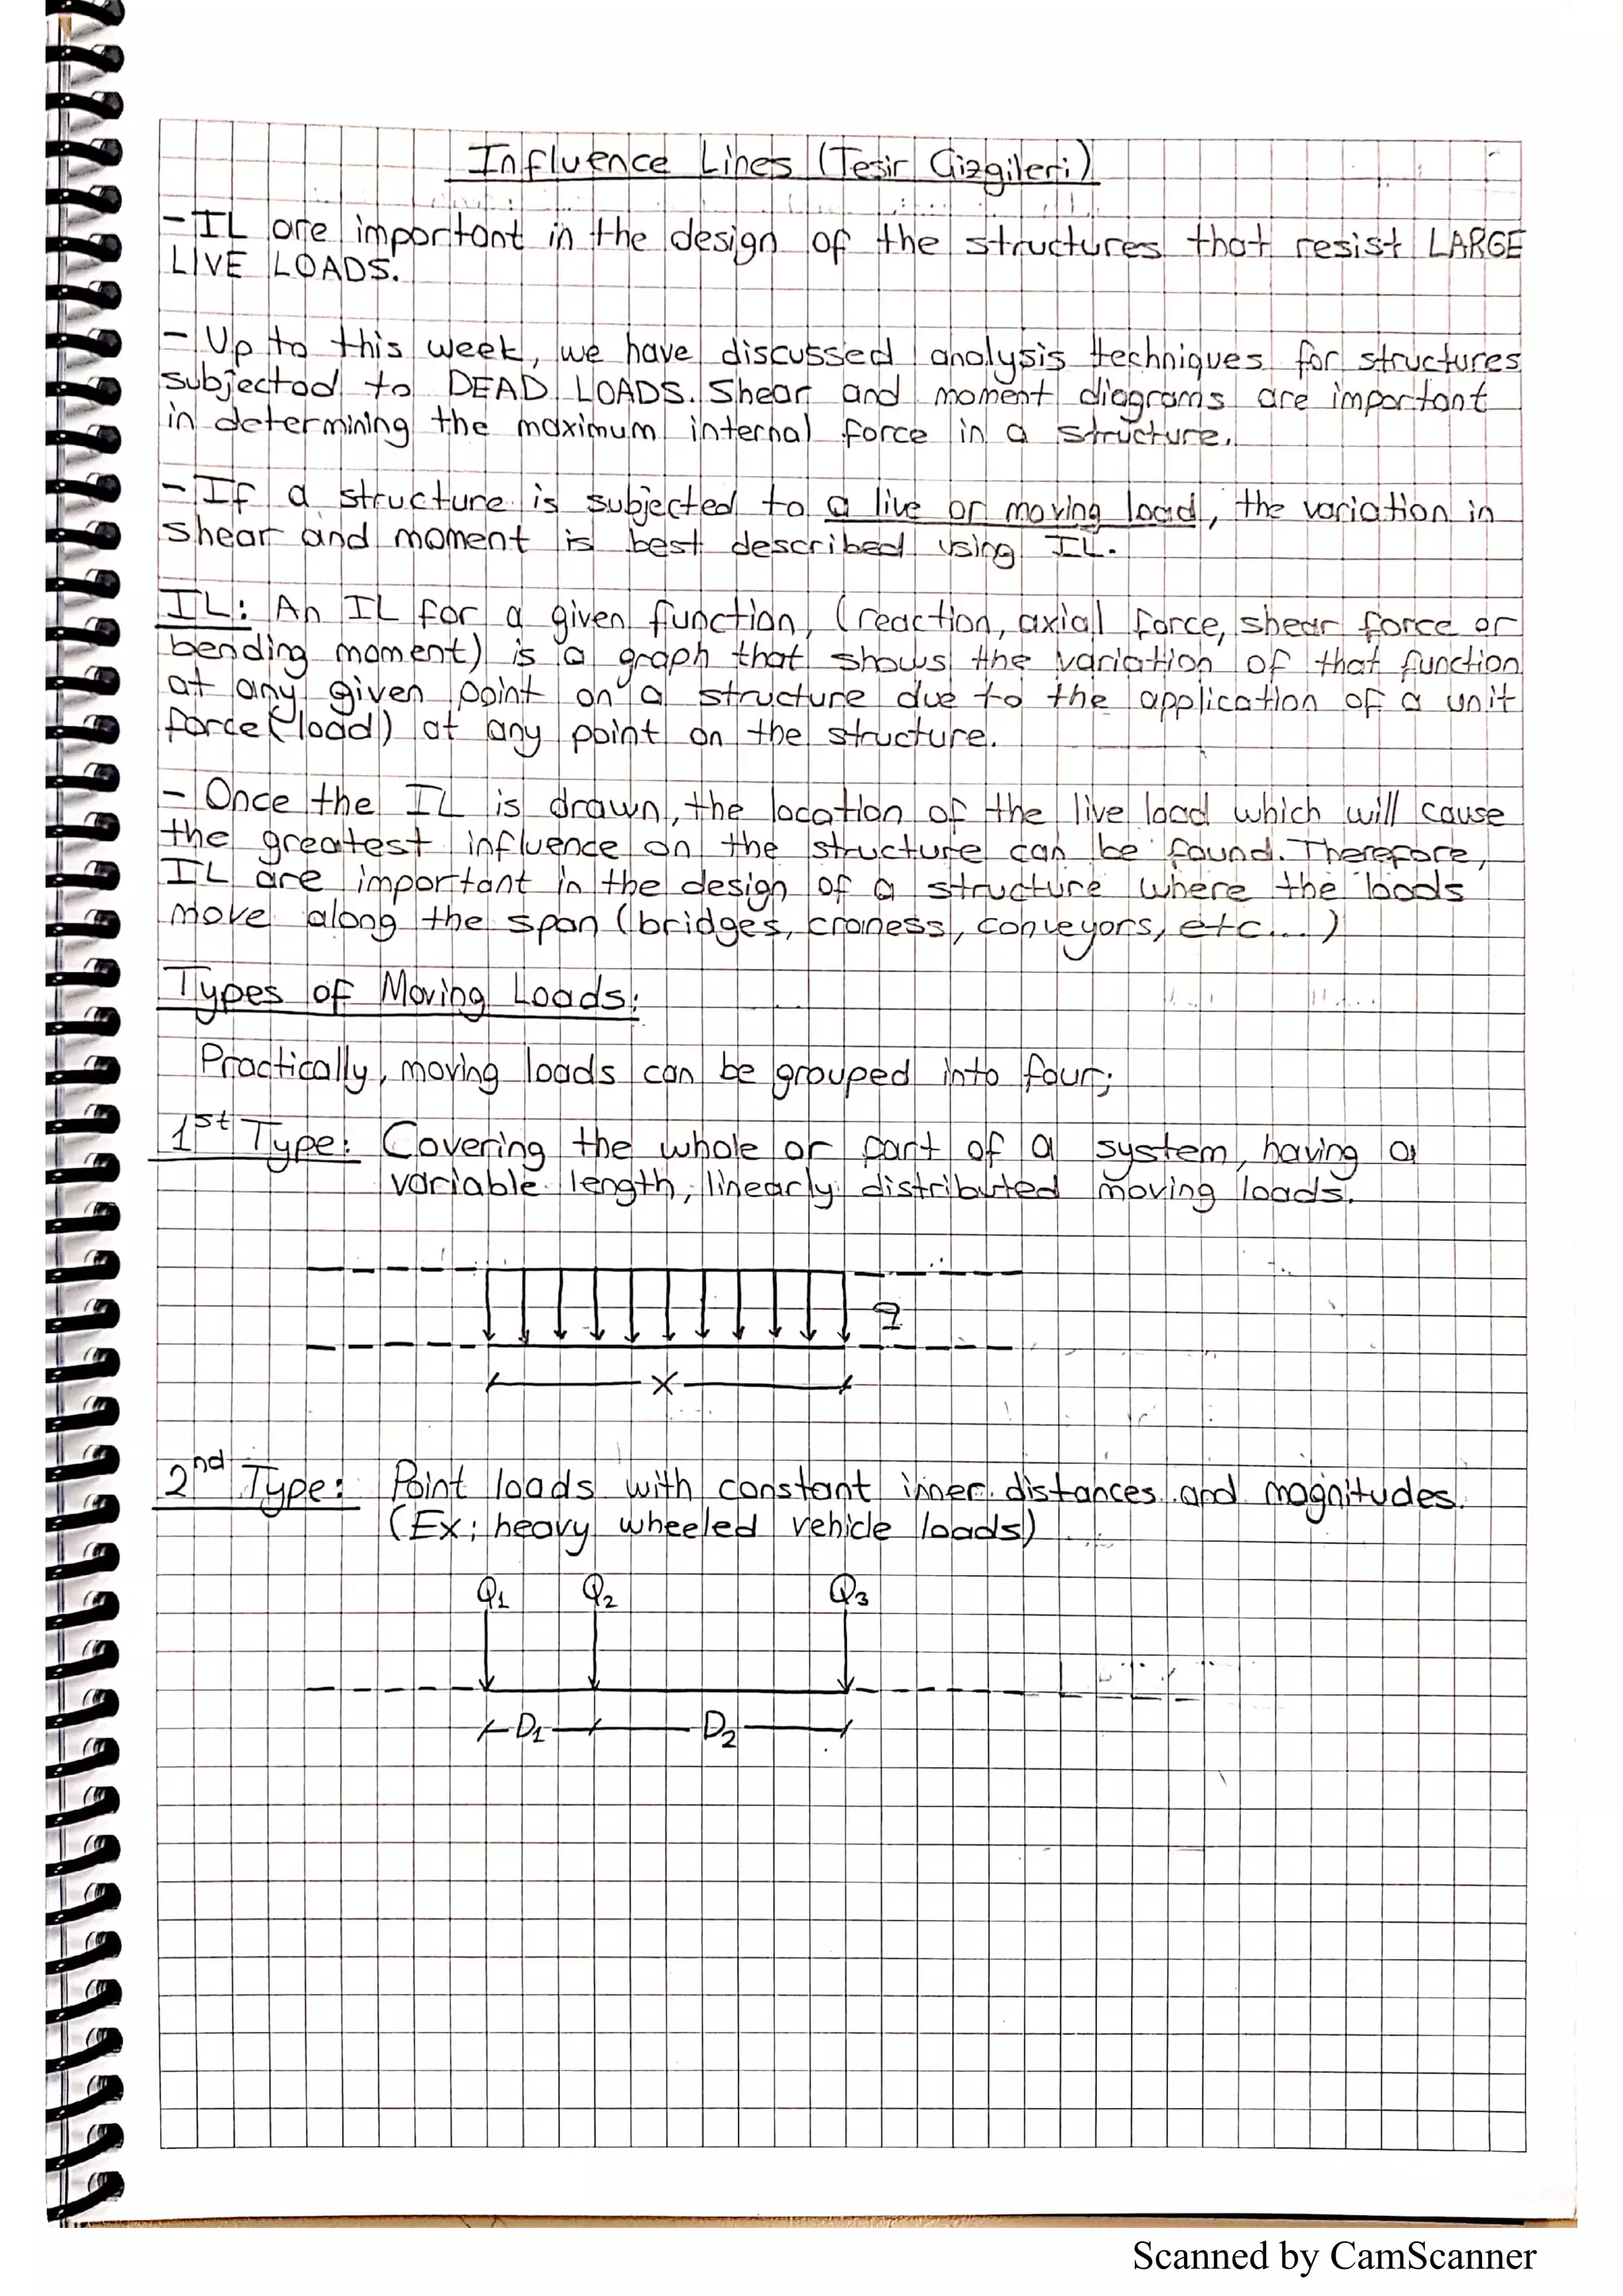 Influence Lines (Tesir Çizgileri)
-IL are important in the design of the structures that resist LARGE
LIVE LOADS.
- Up to this week, we have discussed analysis techniques for structures
subjected to DEAD LOADS. Shear and moment diagrams are important
in determining the maximum internal force in a structure.
- If a structure is subjected to a live or moving load, the variation in
shear and moment is best described using IL.
IL: An IL for a given function, (reaction, axial force, shear force or
bending moment) is a graph that shows the variation of that function
at any given point on a structure due to the application of a unit
force (load) at any point on the structure.
- Once the IL is drawn, the location of the live load which will cause
the greatest influence on the structure can be found. Therefore,
IL are important in the design of a structure where the loads
move along the span (bridges, craness, conveyors, etc...)
Types of Moving Loads:
Practically, moving loads can be grouped into four;
1st Type: Covering the whole or part of a system, having a
variable length, linearly distributed moving loads.
q
x
2nd Type: Point loads with constant inner distances and magnitudes.
(Ex: heavy wheeled vehicle loads)
Q1 Q2 Q3
D1 D2
Scanned by CamScanner